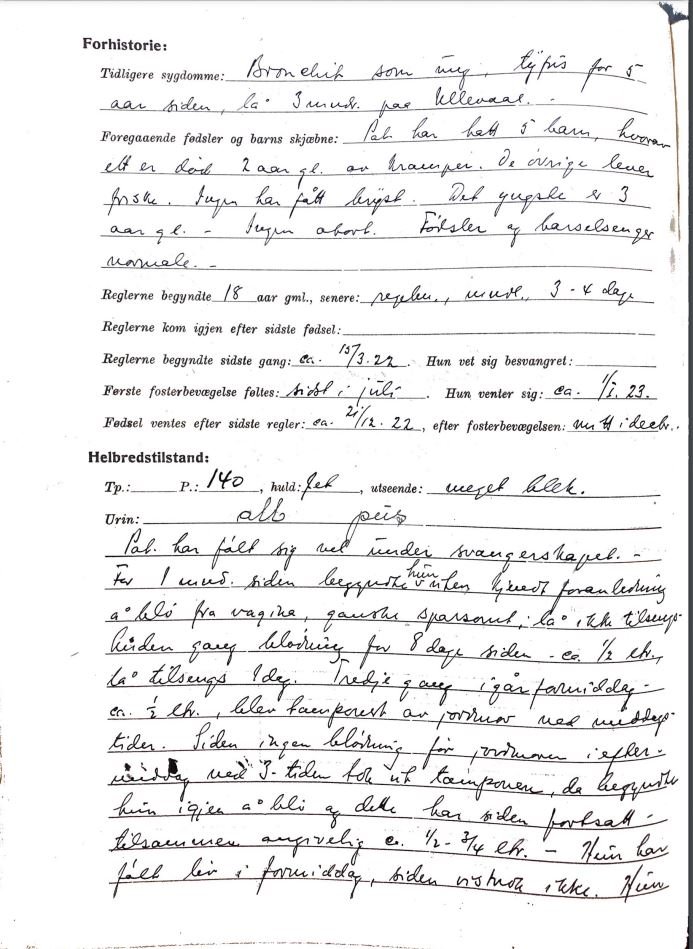 Forhistorie:
Tidligere sygdomme: Bronchit som ung, tyfus for 5
aar siden, la° 3 mndr. paa Ullevaal. -
Foregaaende fødsler og barns skjæbne: Pat. har hatt 5 barn, hvorav
ett er død 2 aar gl. av kramper. De övrige lever
friske. Ingen har fått bryst. Det yngste er 3
aar gl. - Ingen abort. Födsler og barselsenger
normale. -
Reglerne begyndte 18 aar gml., senere: regelm., mndl., 3 - 4 dage
Reglerne kom igjen efter sidste fødsel:
Reglerne begyndte sidste gang: ca. 15/3.22 Hun vet sig besvangret:
Første fosterbevægelse føltes: sidst i juli . Hun venter sig: ca. 1/1. 23.
Fødsel ventes efter sidste regler: ca. 21/12. 22, efter fosterbevægelsen: mitt i decbr..
Helbredstilstand:
Tp.: P.: 140, huld: fet, utseende: meget blek.
Urin: alb pus
Pat. har fált sig vel under svangerskapet. -
For 1 mnd. siden begyndte hun uten kjendt foranledning
a° blö fra vagina, ganske sparsomt, la° ikke tilsengs
Anden gang blödning for 8 dage siden - ca. 1/2 ltr.,
la° tilsengs 1 dag. Tredje gang igår formiddag -
ca. 1/2 ltr., blev tamponert av jordmor ved middags-
tider. Siden ingen blödning før jordmoren i efter-
middag ved 3-tiden tok ut tamponen, da begyndte
hun igjen a° blö og dette har siden fortsatt -
tilsammen angivelig ca. 1/2 - 3/4 ltr. - Hun har
fált liv i formiddag, siden vistnok ikke. Hun